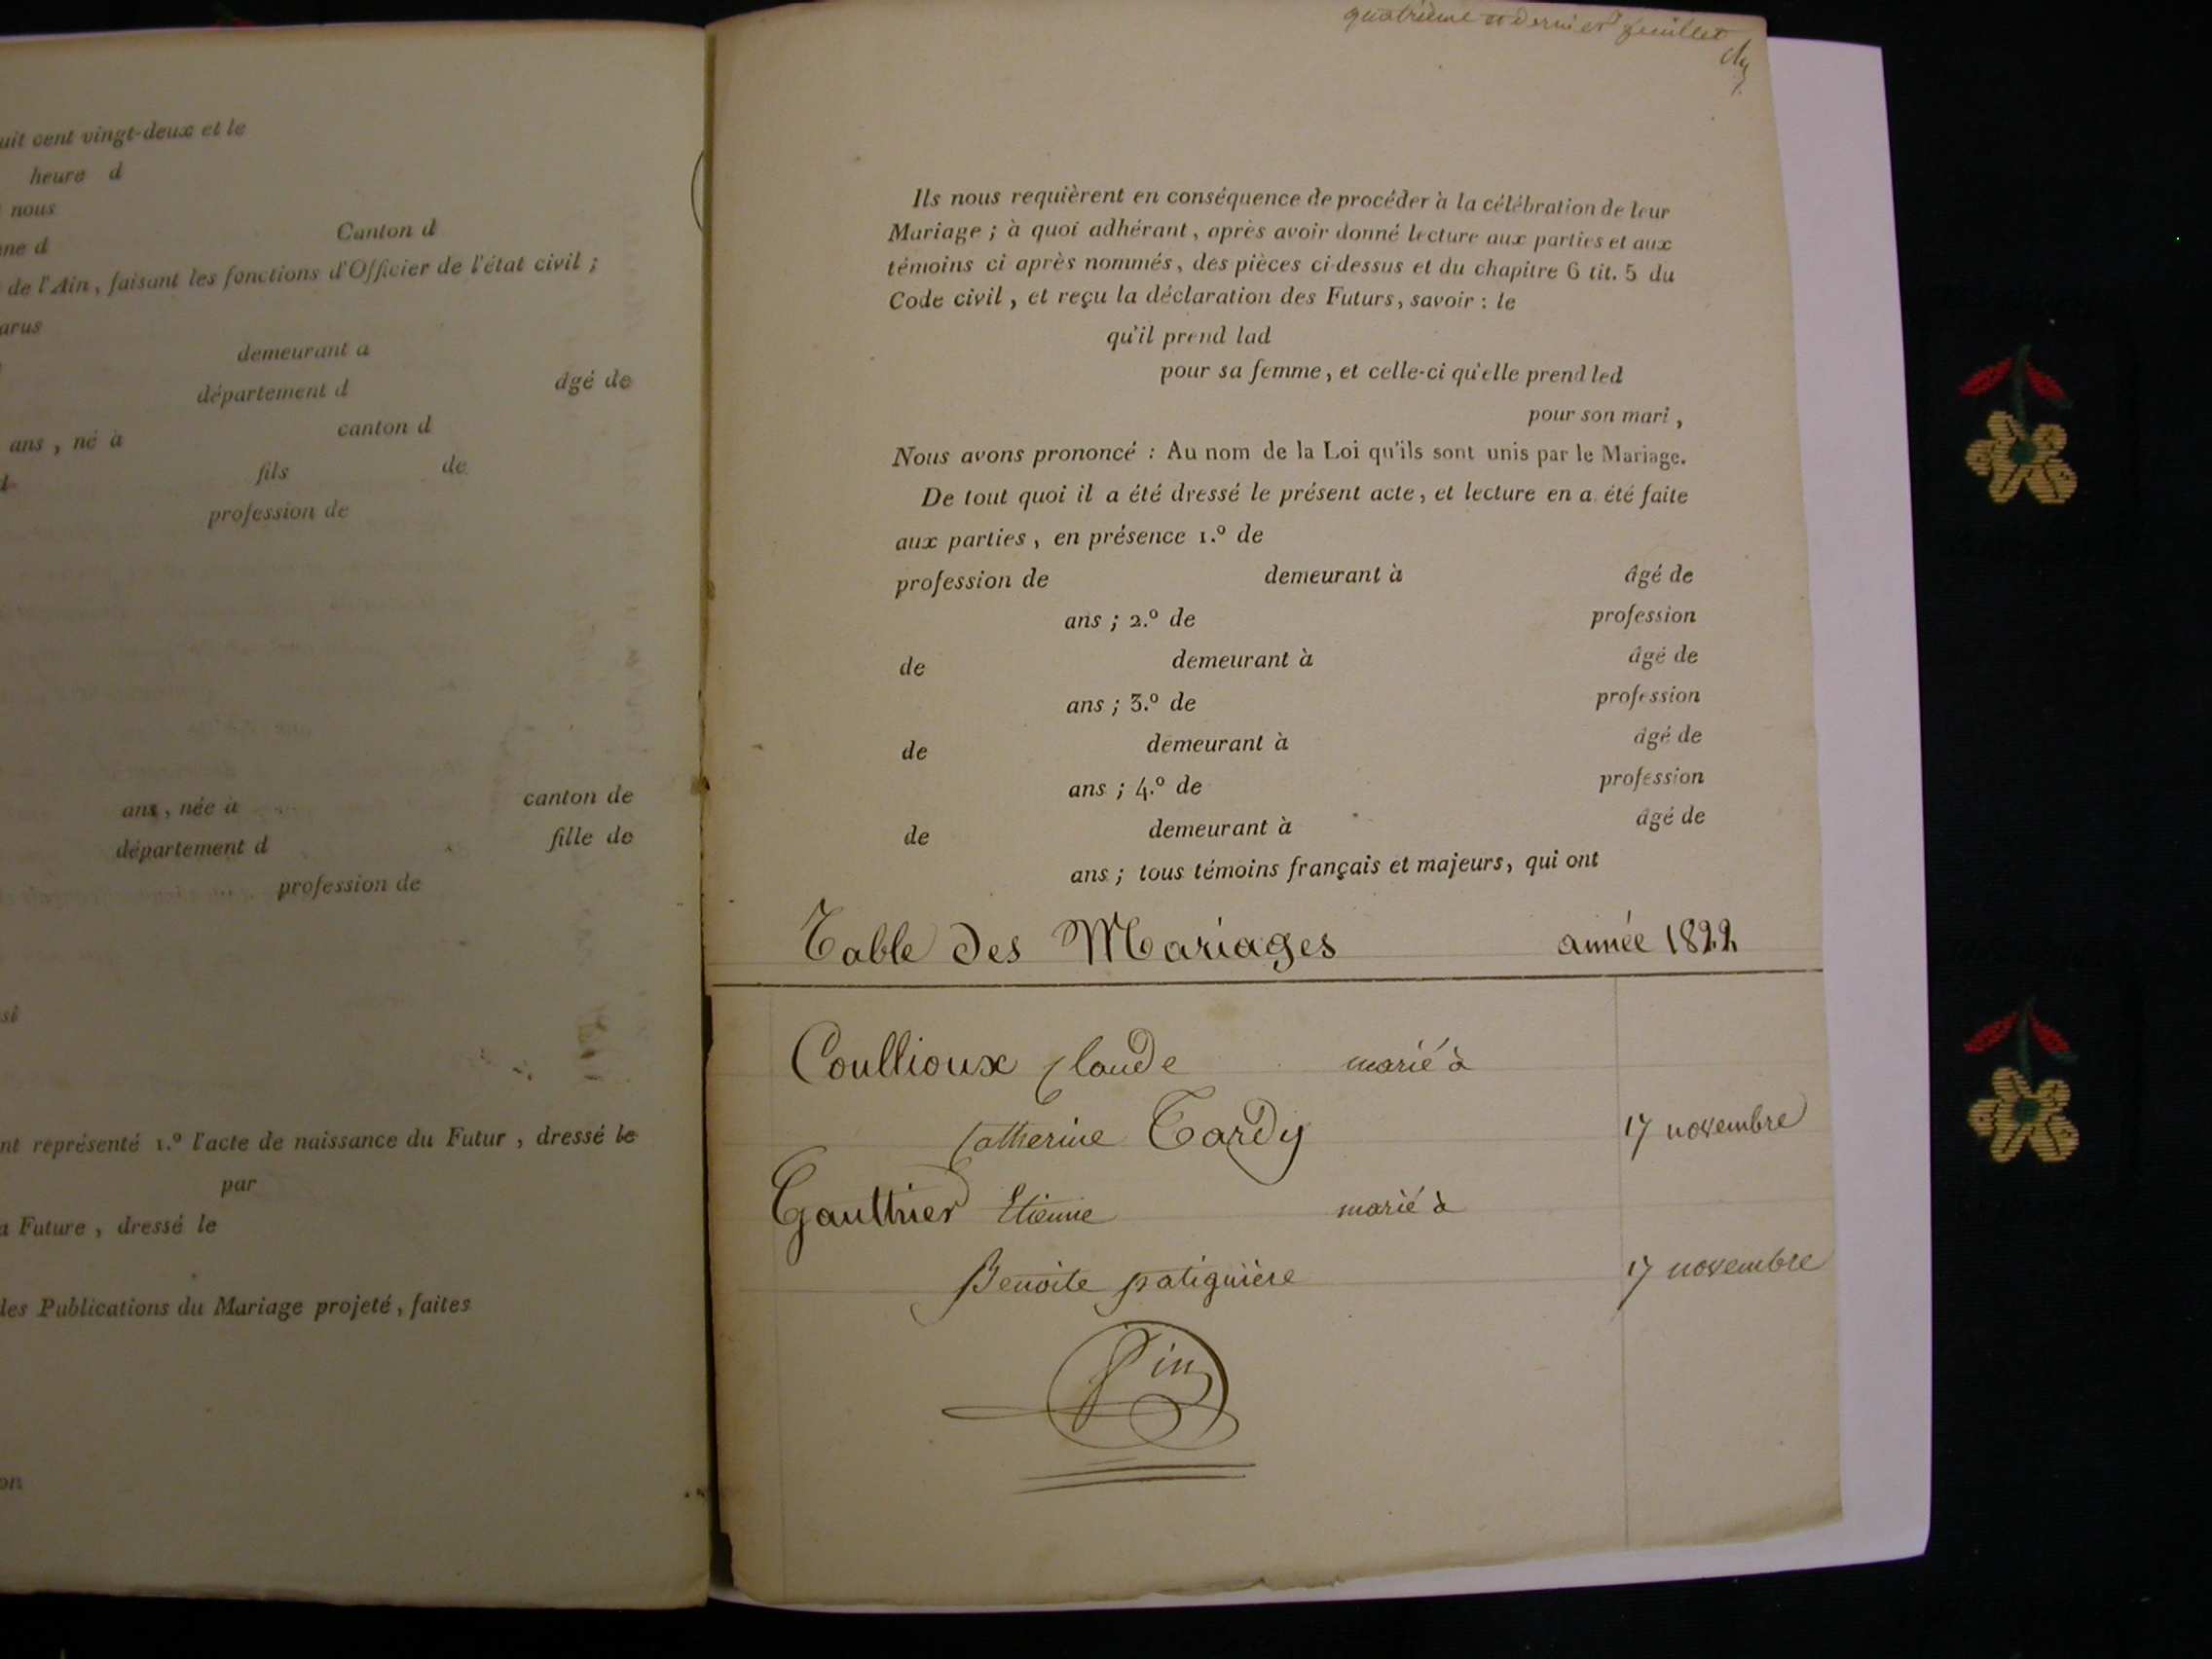 uit cent vingt-deux et le
heure d
nous
ne d Canton d
de l'Ain, faisant les fonctions d'Officier de l'état civil ;
arus
demeurant a
département d âgé de
ans , né à canton d
fils de
profession de
ans, née à canton de
département d fille de
profession de
si
nt représenté 1.º l'acte de naissance du Futur , dressé le
par
a Future , dressé le
des Publications du Mariage projeté, faites
on
quatrième et dernier feuillet
Ils nous requièrent en conséquence de procéder à la célébration de leur
Mariage ; à quoi adhérant, après avoir donné lecture aux parties et aux
témoins ci après nommés, des pièces ci-dessus et du chapitre 6 tit. 5 du
Code civil , et reçu la déclaration des Futurs, savoir : le
qu'il prend lad
pour sa femme, et celle-ci qu'elle prend led
pour son mari ,
Nous avons prononcé : Au nom de la Loi qu'ils sont unis par le Mariage.
De tout quoi il a été dressé le présent acte, et lecture en a été faite
aux parties , en présence 1.º de
profession de demeurant à âgé de
ans ; 2.º de profession
de demeurant à âgé de
ans ; 3.º de profession
de demeurant à âgé de
ans ; 4.º de profession
de demeurant à âgé de
ans ; tous témoins français et majeurs, qui ont
Table des Mariages année 1822
Coullioux Claude marié à
Catherine Tardy 17 novembre
Gauthier Etienne marié à
Benoite patiguière 17 novembre
Fin